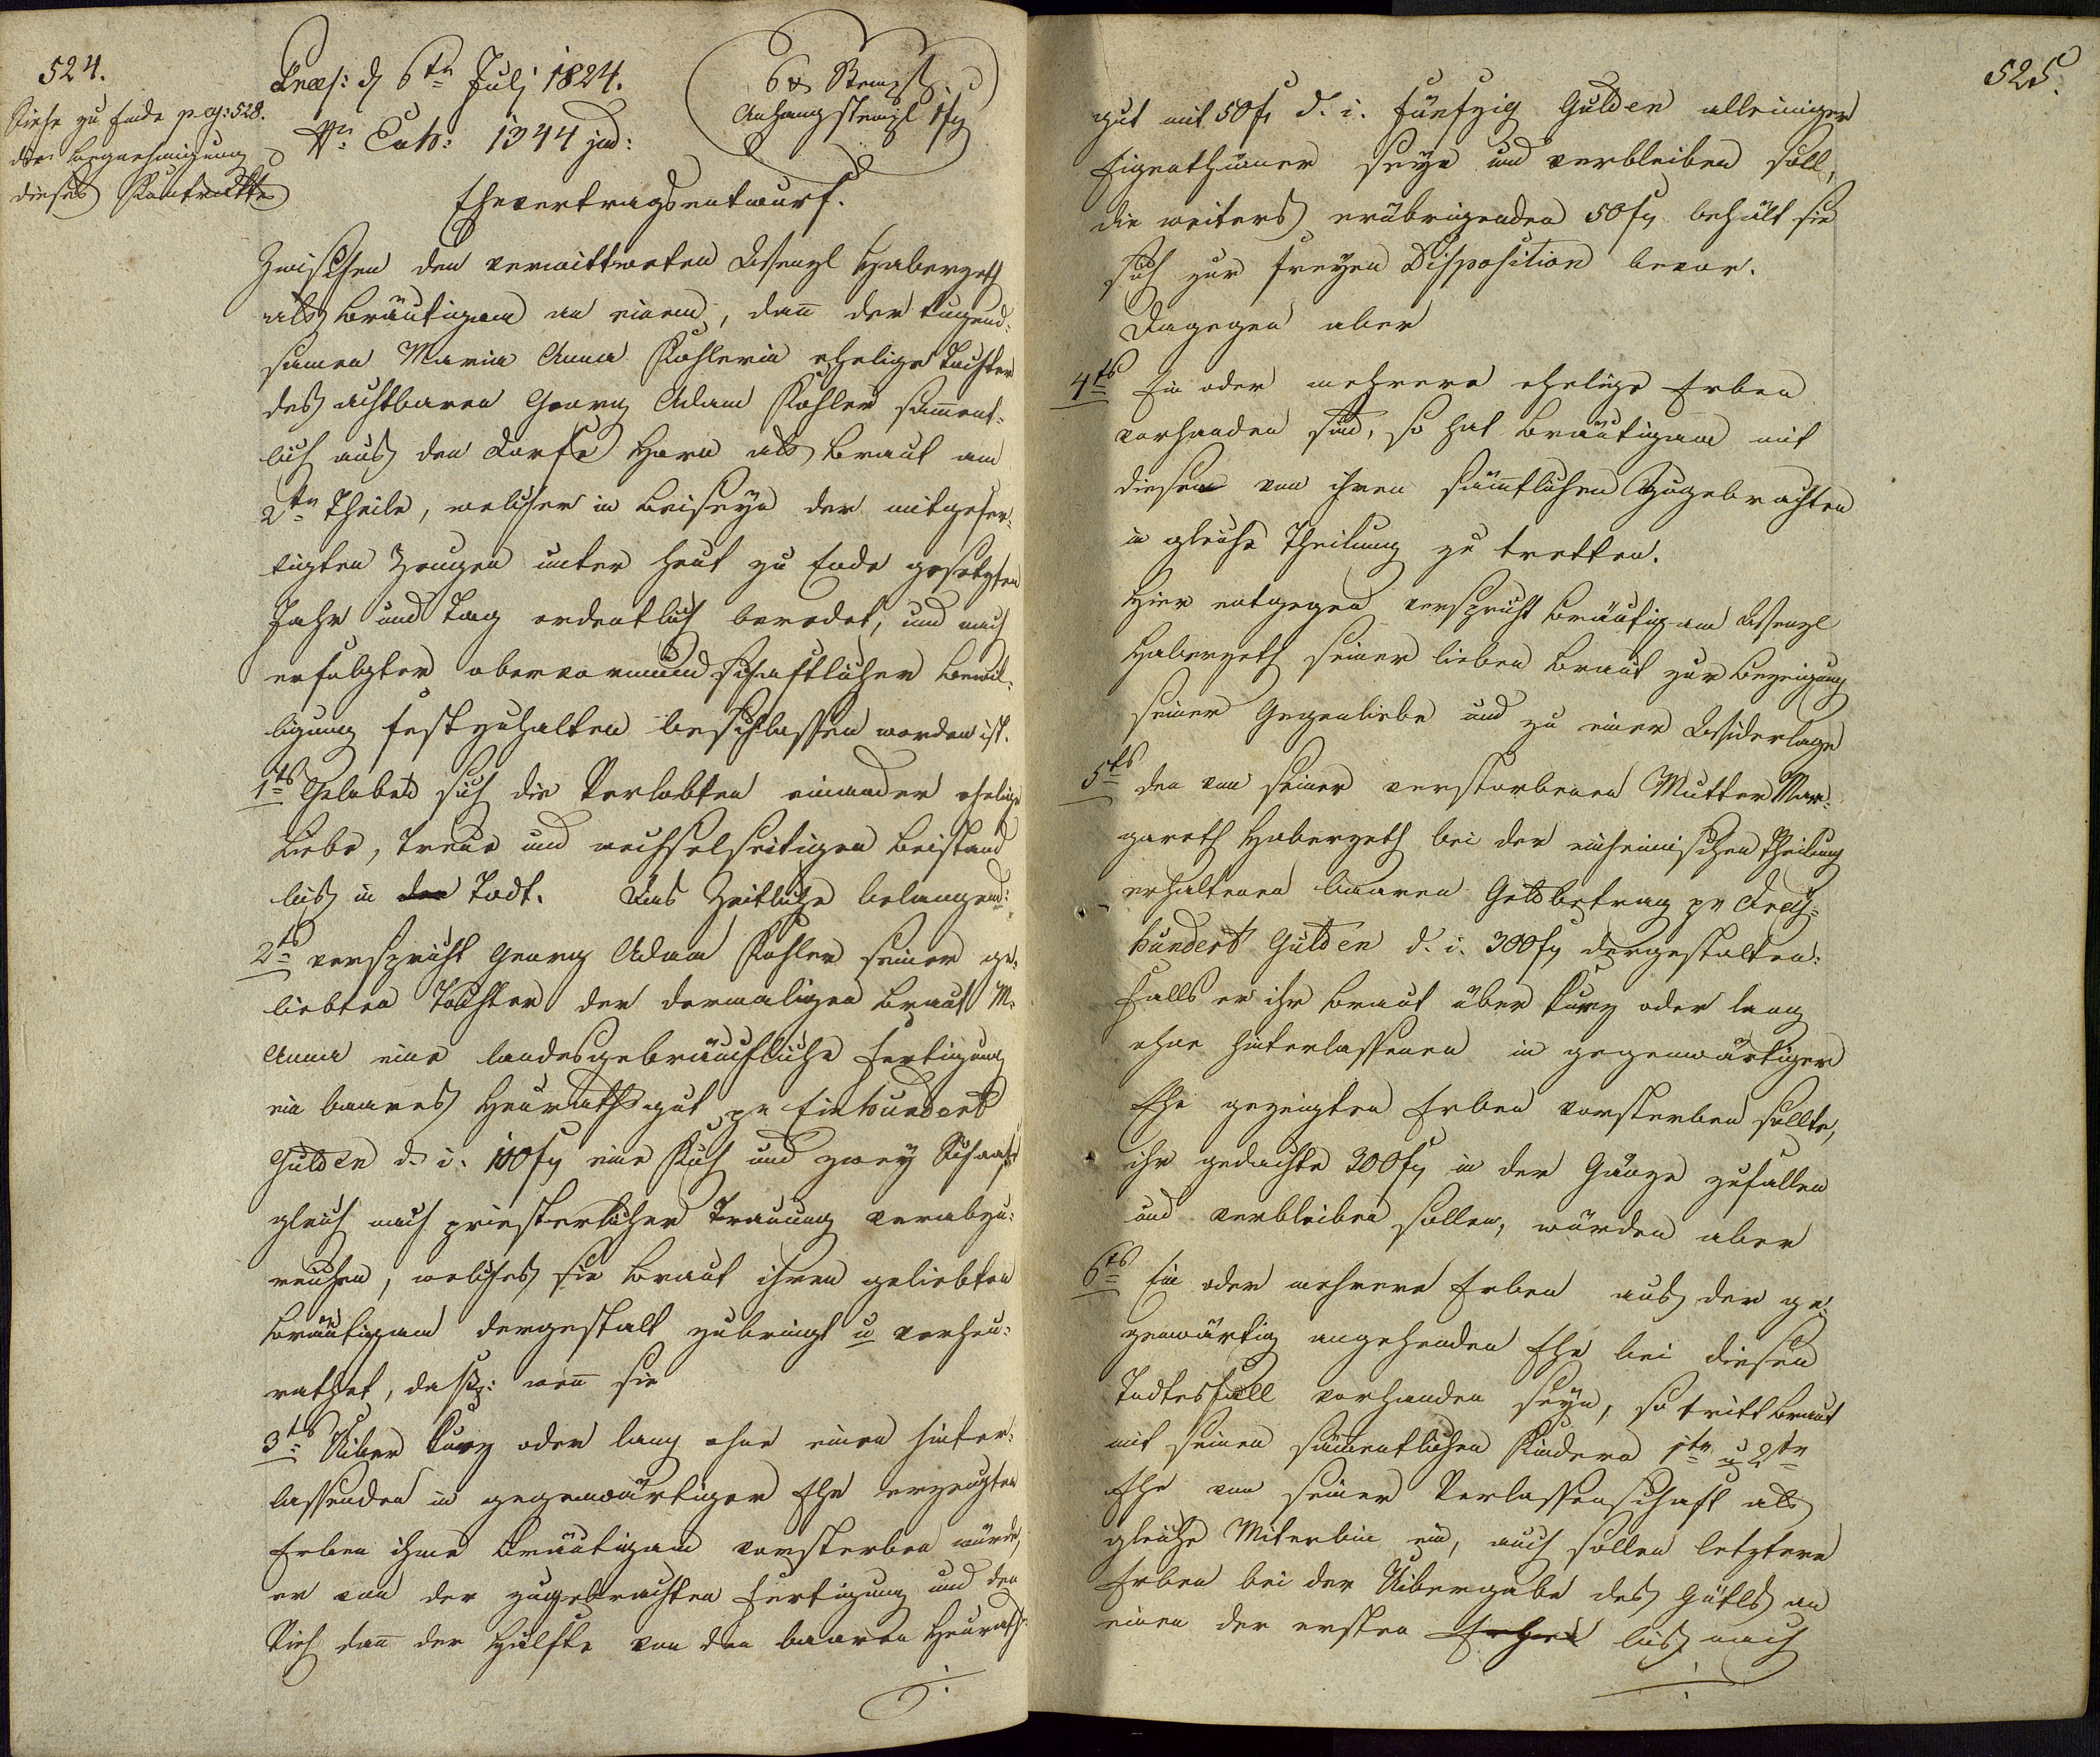 524.
Siehe zu Ende pag: 528.
die Begnehmigung
dieses Kontraktes
Præs: d 6tn Julj 1824.
Nr: Exh: 1344 jud:
6 x Stempl.
Anhangstempl 1 fl
Ehevertragsentwurf.
Zwischen den verwittweten Wenzl Haberzeth
als Bräutigam an einem, dañ der tugend-
samen Maria Anna Kohlerin ehelige Tochter
des achtbaren Georg Adam Kohler sam̃ent-
lich aus den Dorfe Horn als Braut am
2tn Theile, welcher in Beiseyn der mitgefer-
tigten Zeugen unter heut zu Ende gesetzten
Jahr und Tag ordentlich beredet, und nach
erfolgter obervormundschaftlicher Bewil-
ligung festzuhalten beschlossen worden ist.
1ts Geloben sich die Verlobten einander ehelige
Liebe, Treue und wechselseitigen Beistand
bis in den Todt. Das Zeitliche belangend:
2ts verspricht Georg Adam Kohler seiner ge-
liebten Tochter der dermaligen Braut M.
Anna eine landesgebräuchliche Fertigung
ein baares Heurathsgut pr Einhundert
Gulden d. i. 100 fl eine Kuh und zwey Schaafe
gleich nach priesterlicher Trauung verabzu-
reichen, welches sie Braut ihren geliebten
Bräutigam dergestalt zubringt u verheu-
rathet, daß: weñ sie
3ts Uiber kurz oder lang ohne einen hinter-
lassenden in gegenwärtiger Ehe erzeugten
Erben ihme Bräutigam vorsterben würde,
er von der zugebrachten Fertigung und den
Vieh dañ der Hälfte von den baaren Heurath-
525.
gut mit 50 fl d. i. fünfzig Gulden alleiniger
Eigenthümer seyn und verbleiben soll,
die weiters erübrigenden 50 fl behält sie
sich zur freyen Disposition bevor.
Dagegen aber
4ts Ein oder mehrere ehelige Erben
vorhanden sind, so hat Bräutigam mit
diesen von ihren sämtlichen Zugebrachten
in gleiche Theilung zu tretten.
Hier entgegen verspricht Bräutigam Wenzl
Haberzeth seiner lieben Braut zur Bezeigung
seiner Gegenliebe und zu einer Widerlage
5ts den von seiner verstorbenen Mutter Mar-
gareth Haberzeth bei der einheimischen Theilung
erhaltenen baaren Geldbetrag pr Drey-
hundert Gulden d. i. 300 fl dergestalten:
Falls er ihr Braut über kurz oder lang
ohne hinterlassenen in gegenwärtiger
Ehe gezeigten Erben vorsterben sollte,
ihr gedachte 300 fl in der Gänze zufallen
und verbleiben sollen, würden aber
6ts Ein oder mehrere Erben aus der ge-
genwärtig angehenden Ehe bei diesen
Todtesfall vorhanden seyn, so tritt Braut
mit seinen sämentlichen Kindern 1tr u 2tr
Ehe von seiner Verlassenschaft als
gleiche Miterbin ein, auch sollen letztere
Erben bei der Uibergabe des Gütls an
einen der ersten bis nach